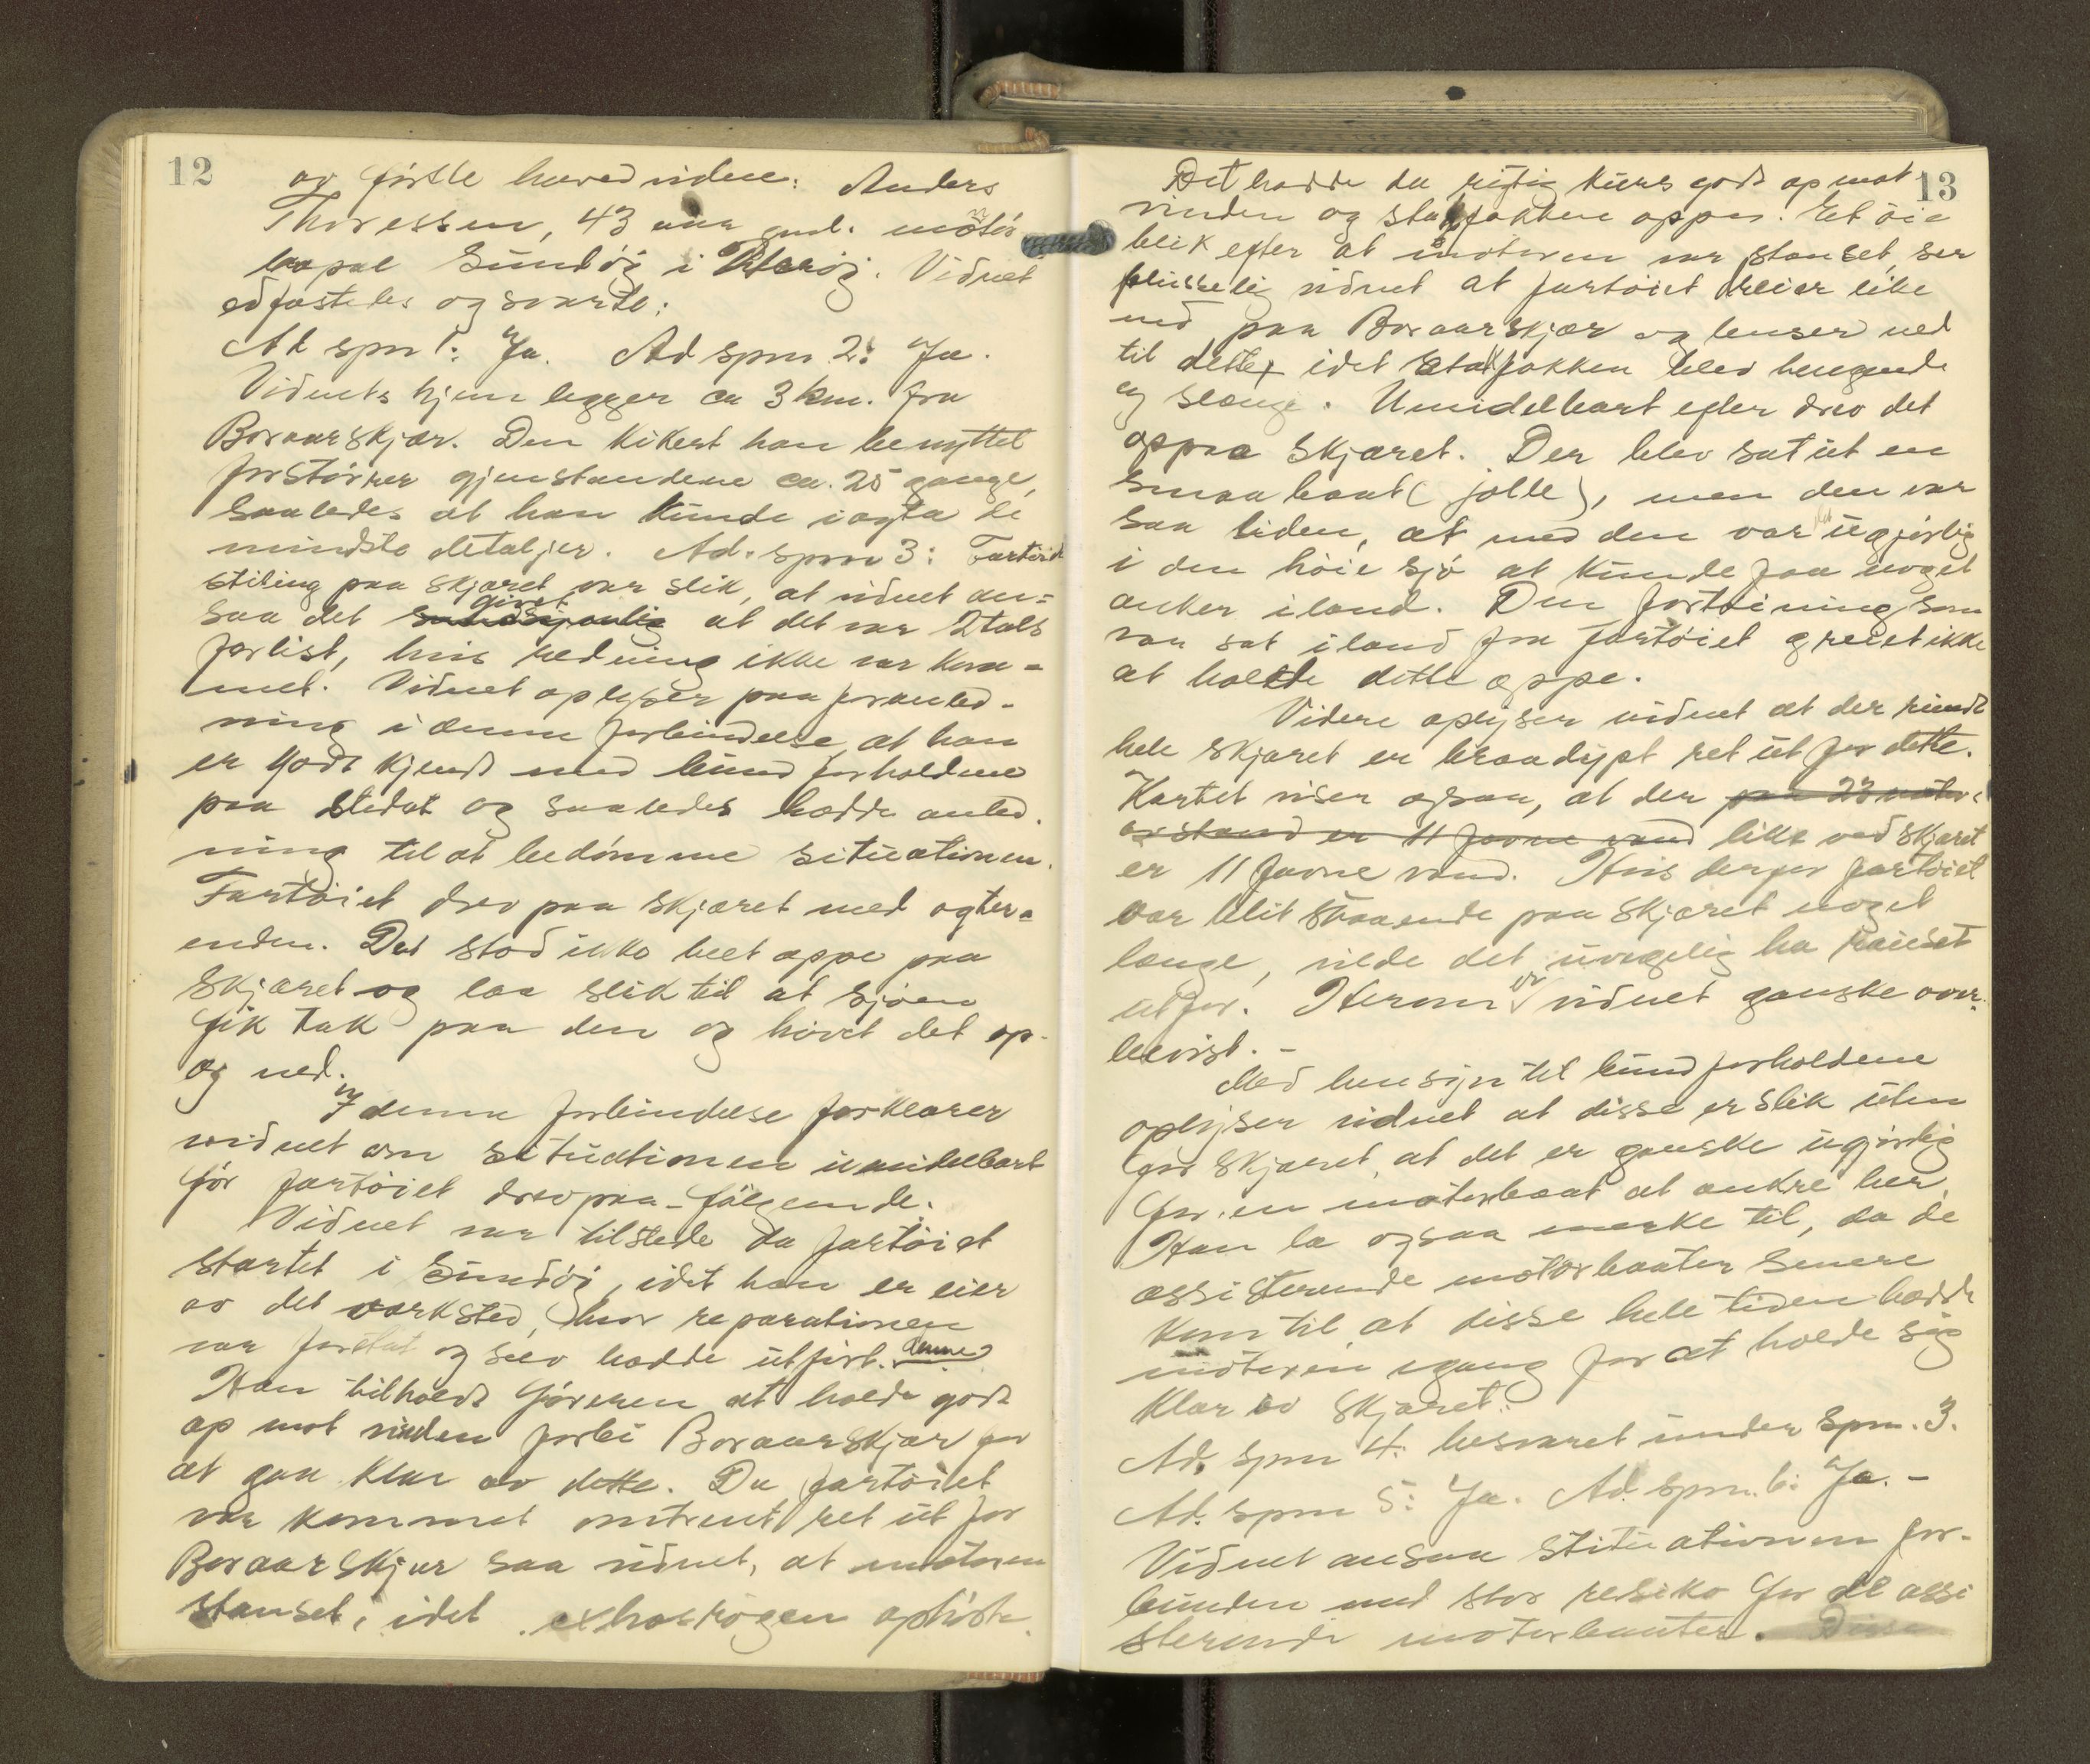 12
av første hovedvidne: Anders
Thoressen, 43 aar gml. motor
bopæl Sundøy i Uterøy. Vidnet
edfæstedes og svarte:
Ad spm 1: Ja. Ad spm 2: Ja.
Vidnets hjem ligger ca 3 km. fra
Boraarskjær. Den kikert han benyttet
forstørrer gjenstandene ca. 25 gange,
saaledes at han kunde iagta de
mindste detaljer. Ad. spm 3: Fartøiets
stiling paa skjæret var slik, at vidnet an=
saa det givet at det var totalt
forlist, hvis redning ikke var kom=
met. Vidnet oplyser paa foranled-
ning i denne forbindelse, at han
er godt kjendt med bundforholdene
paa stedet og saaledes hadde anled.
ning til at bedømme situationen.
Fartøiet drev paa skjæret med agter=
enden. Det stod ikke helt oppe paa
skjæret og laa slik til at sjøen
fik tak paa den og hivet det op-
og ned.
I denne forbindelse forklarer
vidnet om situationen umidelbart
før fartøiet drev paa - følgende:
Vidnet var tilstede da fartøiet
startet i Sundøy, idet han er eier
av det verksted, hvor reparationen
var foretat og selv hadde utført denne.
Han tilholdt føreren at holde godt
op mot vinden forbi Boraarskjær for
at gaa klar av dette. Da fartøiet
var kommet omtrent ret ut for
Boraarskjær saa vidnet, at motoren
stanset, idet exhostrøgen ophørte.
13
Det hadde da rigtig kurs godt op mot
vinden og stagfokken oppe. Et øie
blik efter at motoren var stanset, ser
plutselig vidnet at fartøiet dreier like
ned paa Boraarskjær og lenser ned
til dette, idet stagfokken blev hengende
og slænge. Umidelbart efter drev det
oppaa skjæret. Der blev sat ut en
smaabaat (jolle), men den var
saa liden, at med den var det ugjørlig
i den høie sjø at kunde faa noget
anker iland. Den fortøining, som
var sat iland fra fartøiet greiet ikke
at holde dette oppe.
Videre oplyser vidnet at der rundt
hele skjæret er braadypt ret ut for dette.
Kartet viser ogsaa, at der paa 23 meter
avstand er 11 favne vand like ved skjæret
er 11 favne vand. Hvis derfor fartøiet
var blit staaende paa skjæret noget
længe, vilde det uvægelig ha rauset
utfor. Herom er vidnet ganske over-
bevist. -
Med hensyn til bundforholdene
oplyser vidnet at disse er slik uten
for skjæret, at det er ganske ugjørlig
for en motorbaat at ankre her.
Han la ogsaa merke til, da de
assisterende motorbaater senere
kom til at disse hele tiden hadde
motoren igang for at holde sig
klar av skjæret.
Ad. spm 4. besvaret under spm. 3.
Ad. spm 5: Ja. Ad. spm. 6: Ja. -
Vidnet ansaa stituationen for-
bunden med stor resiko for de assi
sterende motorbaater. Disse